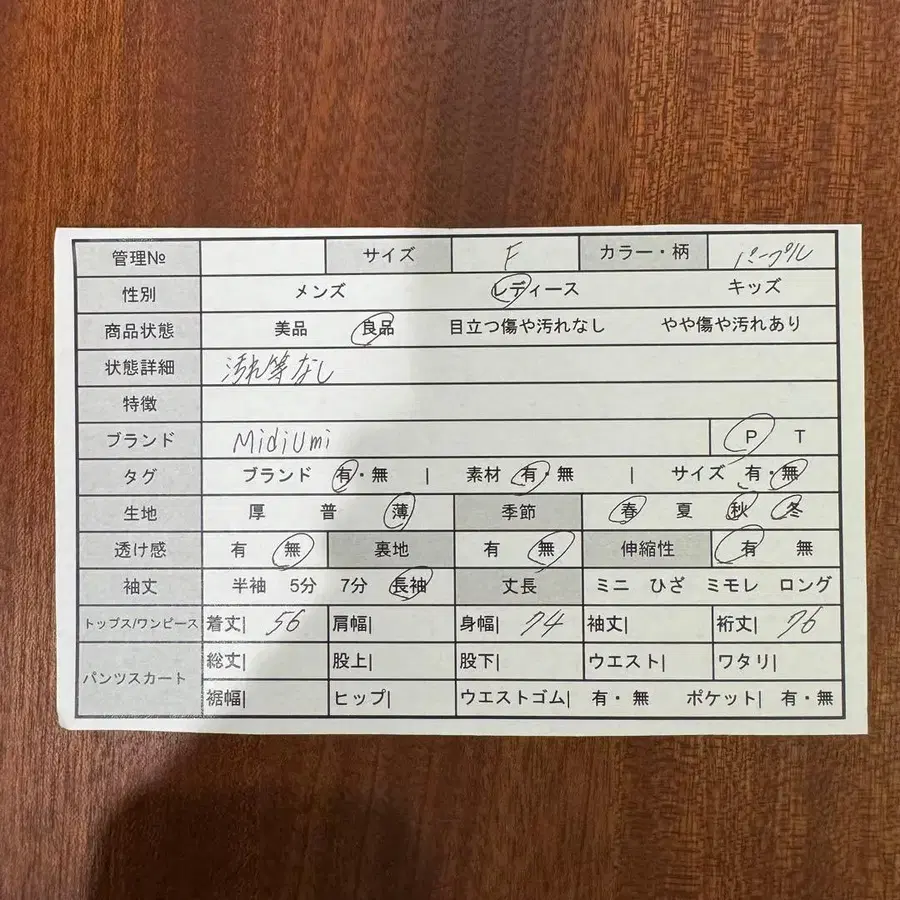 管理№ サイズ F カラー・柄 パープル
性別 メンズ レディース キッズ
商品状態 美品 良品 目立つ傷や汚れなし やや傷や汚れあり
状態詳細 汚れ等なし
特徴
ブランド MidiUmi P T
タグ ブランド 有・無 | 素材 有・無 | サイズ 有・無
生地 厚 普 薄 季節 春 夏 秋 冬
透け感 有 無 裏地 有 無 伸縮性 有 無
袖丈 半袖 5分 7分 長袖 丈長 ミニ ひざ ミモレ ロング
トップス/ワンピース 着丈| 56 肩幅| 身幅| 74 袖丈| 裄丈| 76
パンツスカート 総丈| 股上| 股下| ウエスト| ワタリ|
裾幅| ヒップ| ウエストゴム| 有・無 ポケット| 有・無